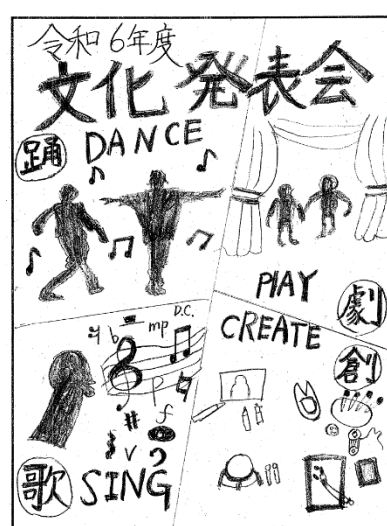 令和6年度
文化発表会
踊 DANCE
PLAY 劇
CREATE
創
D.C.
mp
p
f
歌 SING